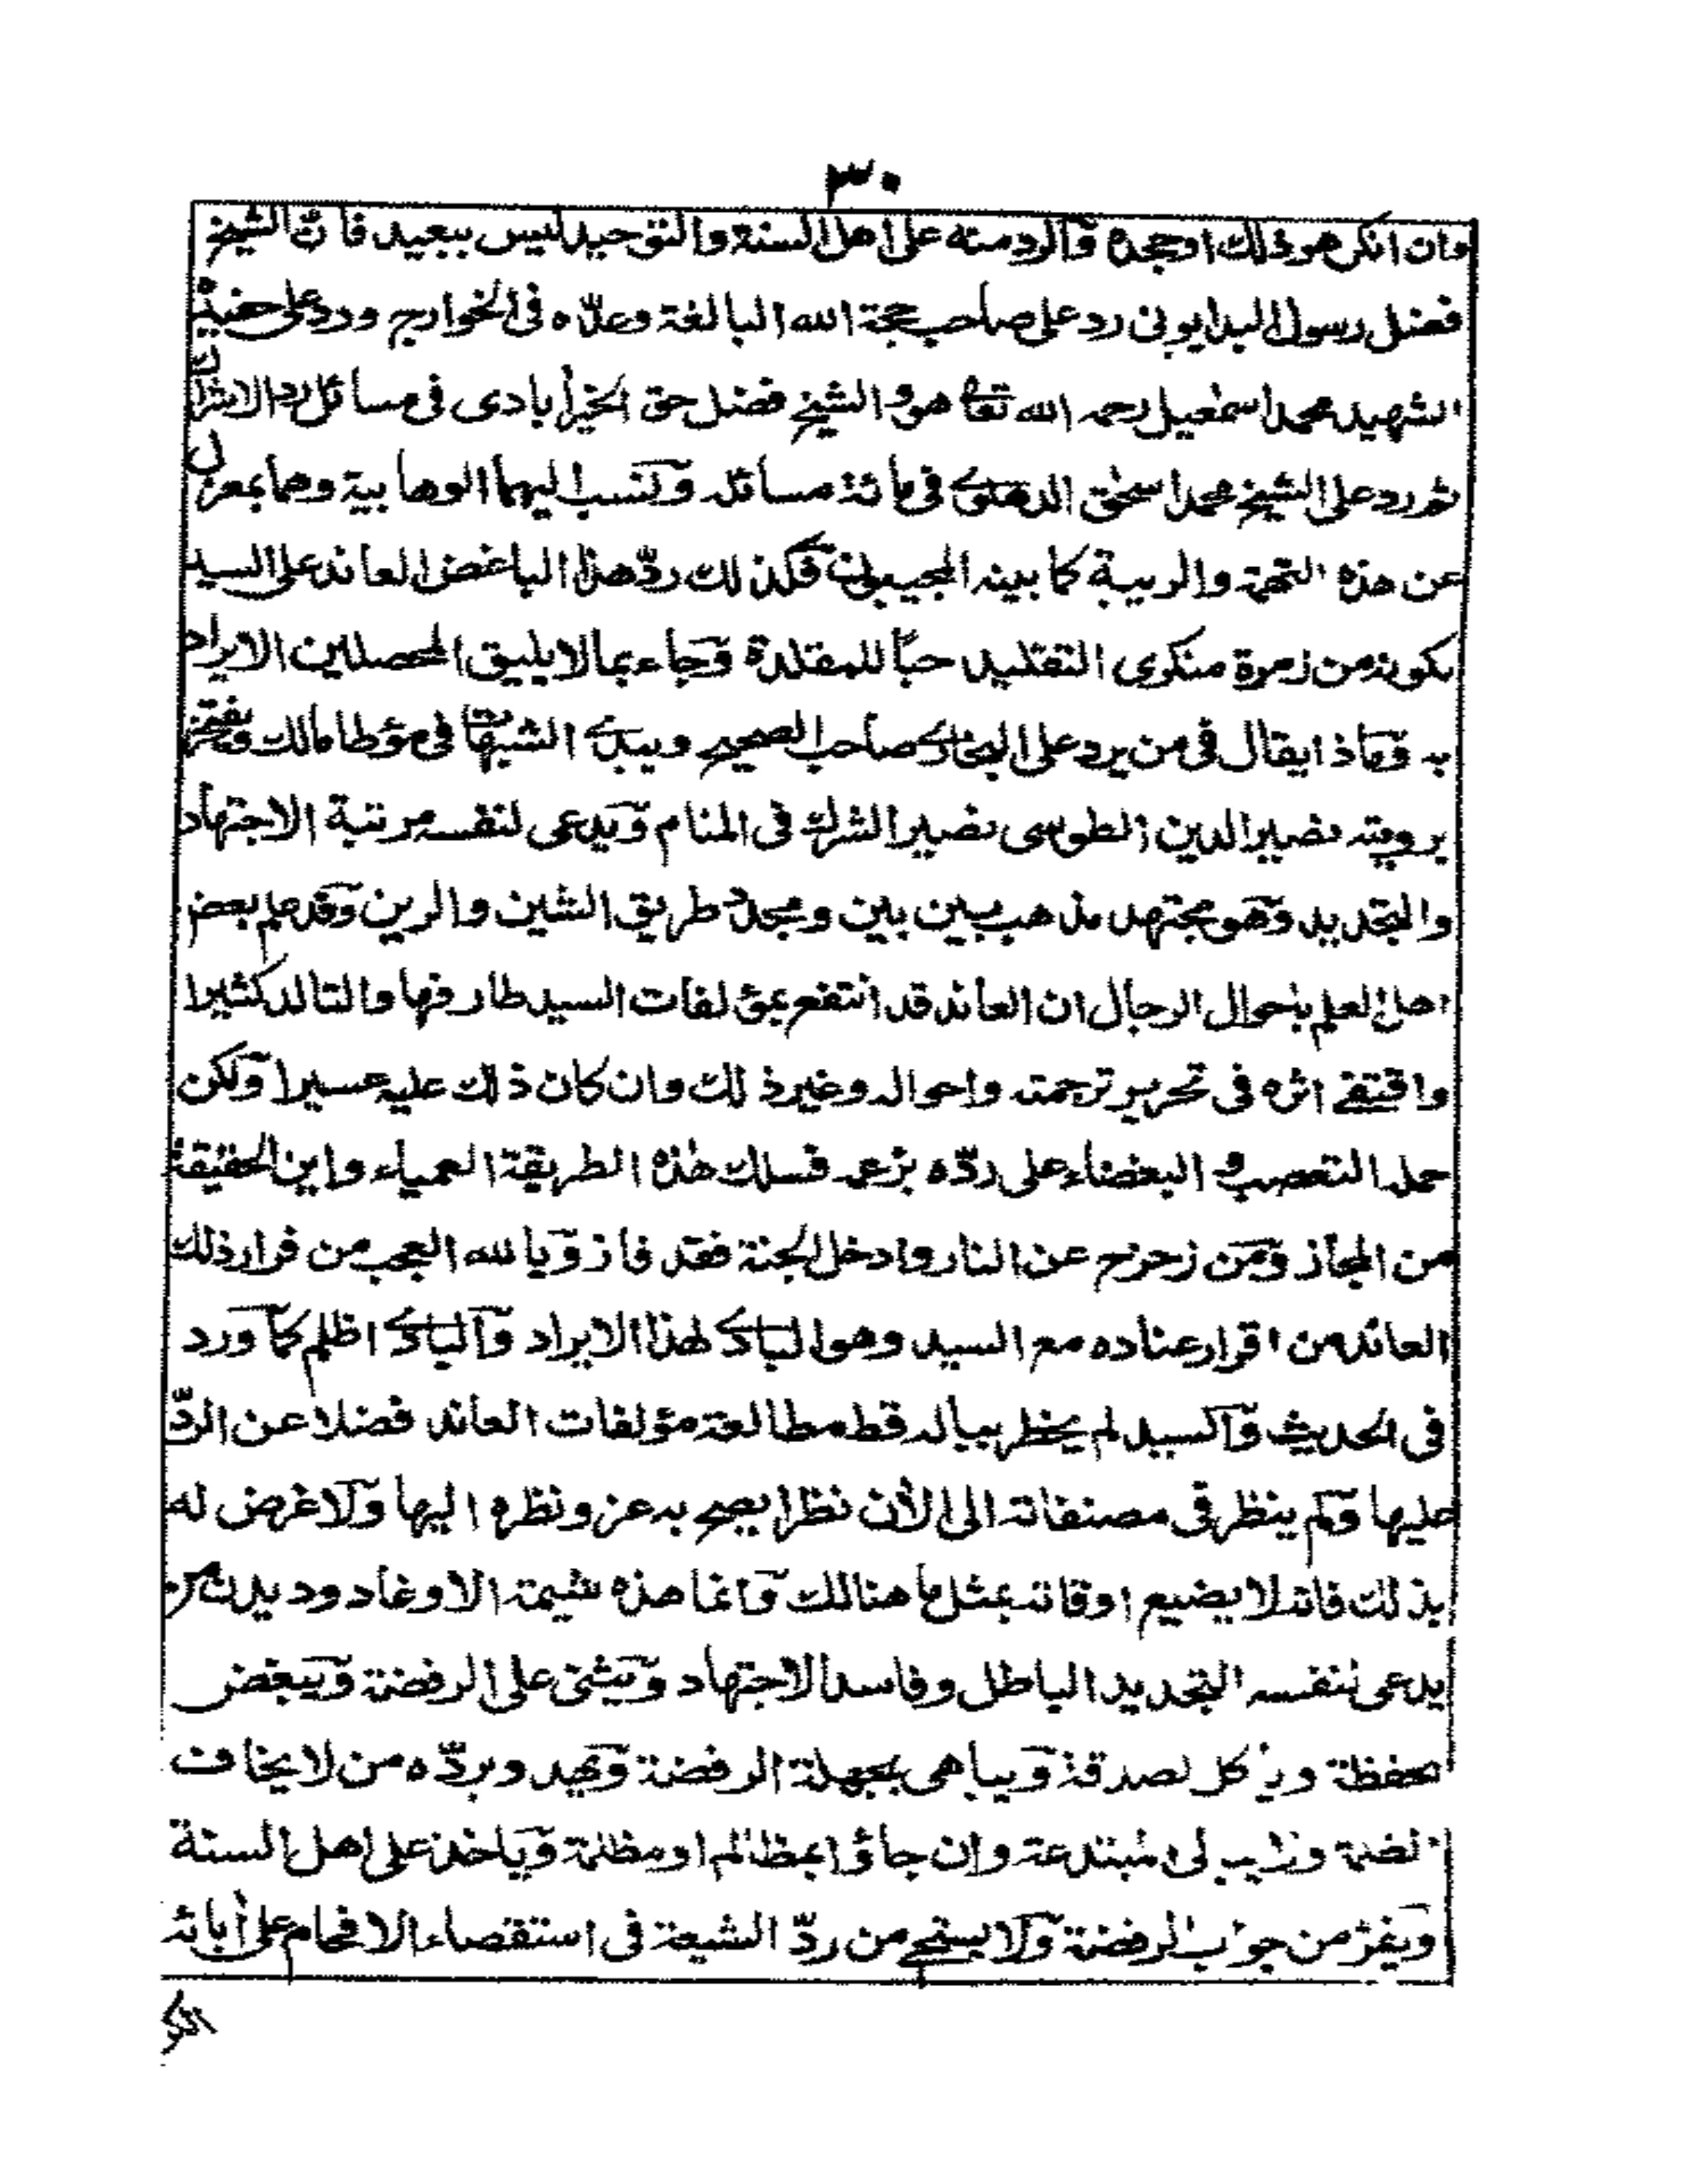 ٣٠
وان انكر هو ذلك او جحده والرد منه على اهل السنة والتوحيد ليس ببعيد فان الشيخ
فضل رسول البدايوني رد على صاحب حجة الله البالغة وعدّه في الخوارج ورد على حفيده
الشهيد محمد اسمعيل رحمه الله تعالى هو والشيخ فضل حق الخيرأبادى في مسائل رد الاشراك
ثم رد على الشيخ محمد اسحق الدهلوى في مائة مسائل ونسب اليهما الوهابية وهما بمعزل
عن هذه التهمة والريبة كما بينه المجيبون فكذلك ردّ هذا الباغض العاند على السيد
بكونه من زمرة منكرى التقليد حبّا للمقلدة وجاء بما لا يليق المحصلين الايراد
به وماذا يقال في من يرد على البخارى صاحب الصحيح ويبدى الشبهات في مؤطا مالك ويفتخر
برويته نصير الدين الطوسى نصير الشرك في المنام ويدعى لنفسه مرتبة الاجتهاد
والتجديد وهو مجتهد مذهب بين بين ومجدد طريق الشين والرين وقد علم بعض
اهل العلم باحوال الرجال ان العاند قد انتفع بمؤلفات السيد طارفها والتالد كثيرا
واقتفى اثره في تحرير ترجمته واحواله وغير ذلك وان كان ذلك عليه عسيرا ولكن
حمله التعصب والبغضاء على ردّه بزعمه فسلك هذه الطريقة العمياء واين الحقيقة
من المجاز ومن زحزح عن النار وادخل الجنة فقد فاز ويا لله العجب من فرار ذلك
العاند من اقرار عناده مع السيد وهو البادى لهذا الايراد والبادى اظلم كما ورد
في الحديث والسيد لم يخطر بباله قط مطالعة مؤلفات العاند فضلا عن الردّ
عليها ولم ينظر في مصنفاته الى الأن نظرا يصح به عزو نظره اليها ولا غرض له
بذلك فانه لا يضيع اوقاته بمثل ما هنالك وانما هذه شيمة الاوغاد وديدن من
يدعى لنفسه التجديد الباطل وفاسد الاجتهاد ويثنى على الرفضة ويبغض
الحفظة ويأكل الصدقة ويباهى بجهلة الرفضة ويهدد بردّه من لا يخافت
ويفرّ من جواب الرفضة ولا يستحيى من ردّ الشيعة في استقصاء الافحام على أبائه